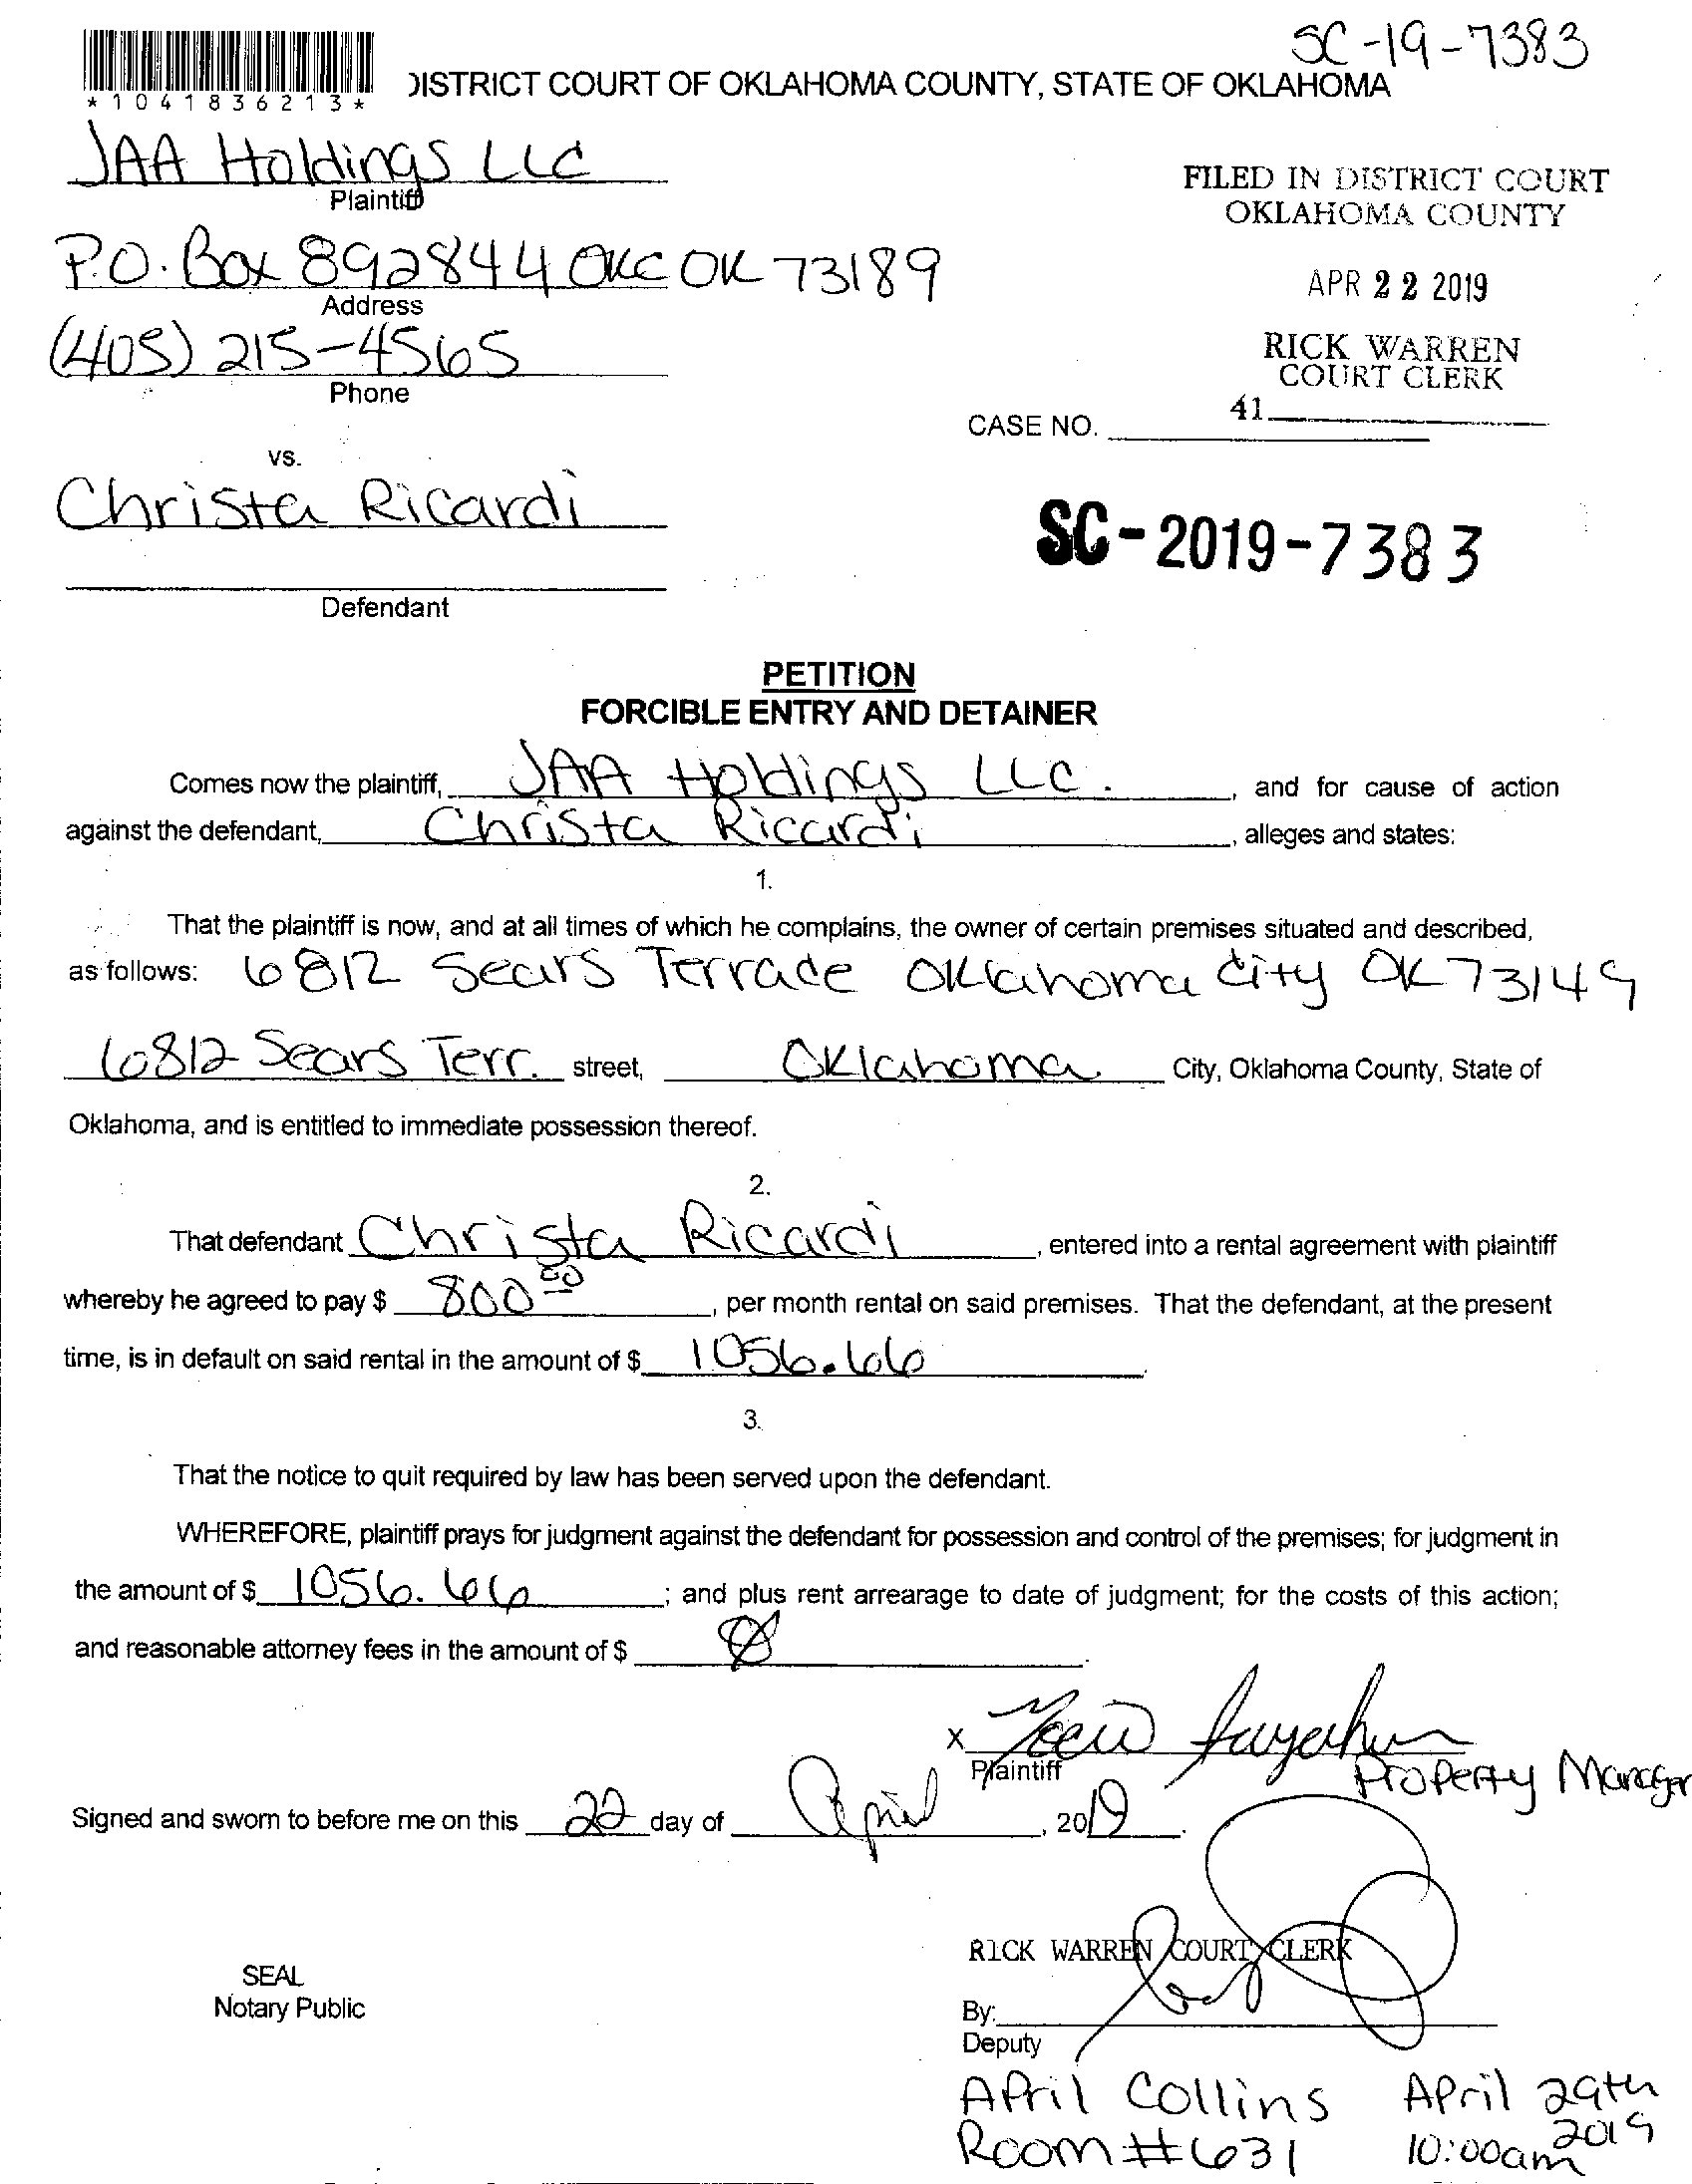 SC-19-7383
*1041836213*
DISTRICT COURT OF OKLAHOMA COUNTY, STATE OF OKLAHOMA
JAA Holdings LLC
Plaintiff
P.O. Box 892844 OKC OK 73189
Address
(405) 215-4565
Phone
FILED IN DISTRICT COURT
OKLAHOMA COUNTY
APR 22 2019
RICK WARREN
COURT CLERK
41
CASE NO.
vs.
Christa Ricardi
Defendant
SC-2019-7383
PETITION
FORCIBLE ENTRY AND DETAINER
Comes now the plaintiff, JAA Holdings LLC. , and for cause of action
against the defendant, Christa Ricardi , alleges and states:
1.
That the plaintiff is now, and at all times of which he complains, the owner of certain premises situated and described,
as follows: 6812 Sears Terrace Oklahoma City OK 73149
6812 Sears Terr. street, Oklahoma City, Oklahoma County, State of
Oklahoma, and is entitled to immediate possession thereof.
2.
That defendant Christa Ricardi , entered into a rental agreement with plaintiff
whereby he agreed to pay $ 800 00 , per month rental on said premises. That the defendant, at the present
time, is in default on said rental in the amount of $ 1056.66 .
3.
That the notice to quit required by law has been served upon the defendant.
WHEREFORE, plaintiff prays for judgment against the defendant for possession and control of the premises; for judgment in
the amount of $ 1056.66 ; and plus rent arrearage to date of judgment; for the costs of this action;
and reasonable attorney fees in the amount of $ .
X
Plaintiff
Property Manager
Signed and sworn to before me on this 22 day of April , 2019 .
RICK WARREN COURT CLERK
SEAL
Notary Public
By:
Deputy
April Collins April 29th
2019
Room #631 10:00am